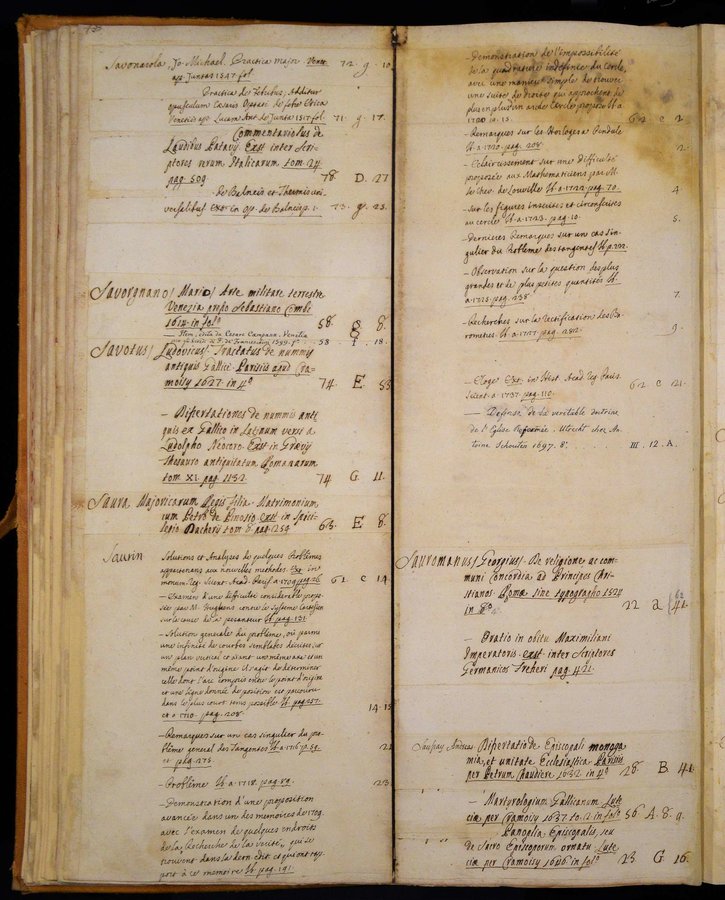 Savonarola, Jo. Michael. Practica major. Venet.
ap. Juntas 1547. fol. 72. g. 10
Practica de Febribus, Additur
opusculum Cæsaris Optati de febre Etica
Venetiis ap. Lucam Ant. de Junta 1517 fol. 71. g. 17.
Commentariolus de
Laudibus Patavii Ext. inter Scri-
ptores rerum Italicarum tom. 24.
pag. 509. 78 D. 27
- de Balneis et Thermis uni-
versalibus Ext. in Op. de Balneis p. 1. 73. g. 23.
Savorgnano/ Mario/ Arte militare terrestre
Venezia presso Sebastiano Combi
1614. in folo 58. 8.
Item, edita da Cesare Campana. Venetia
1599. fo. 58 18.
Savotus/ Ludovicus/ Tractatus de nummis
antiquis Gallicè. Parisiis apud Cra-
moisy 1627. in 4o 74. E 53
- Dissertationes de nummis anti-
quis ex Gallico in Latinum versa a
Ludolpho Neocoro. Exst. in Grævij
Thesauro antiquitatum Romanarum
tom XI. pag. 1152. 74 G 11.
Saura, Majoricarum Regis filia. Matrimonium
cum Petro de Pinosio exst. in Spici-
legio Dacherij tom 8. pag. 254 63. E 8.
Saurin Solutions et Analyses de quelques Problemes
appartenans aux nouvelles methodes. Ext. in
monum. Reg. Scient. Acad. Paris. a. 1709. pag. 26. 62 c 14
- Examen d'une difficulté considerable propo-
sée par M. Hughens contre le Systeme Cartesien
sur la cause de la pesanteur Ib. pag. 131.
- Solution generale du probleme, où parmi
une infinité de courbes semblables decrites sur
un plan vertical et ayant un même axe et un
même point d'origine il s'agit de determiner
celle dont l'arc compris entre le point d'origine
et une ligne donnée de position est parcouru
dans le plus court tems possible Ib. pag. 257.
et a 1710. pag. 208. 14. 15
- Remarques sur un cas singulier du pro-
blême general des Tangentes Ib. a. 1716. p. 59. 21
et pag. 275.
- Problême Ib. a. 1718. pag. 89. 23
- Demonstration d'une proposition
avancée dans un des memoires de 1709.
avec l'examen de quelques endroits
de la Recherche de la verité, qui se
trouvent dans la dern. edit. et qui ont rap-
port à ce memoire Ib. pag. 191.
- Demonstration de l'impossibilité
de la quadrature indefinie du Cercle,
avec une maniere simple de trouver
une suite de droites qui approchent de
plus en plus d'un arc de Cercle proposé Ib. a
1720. p. 15. 62 c 2.
- Remarques sur les Horloges a Pendule
Ib. a. 1720. pag. 208. 2.
- Eclaircissement sur une difficulté
proposée aux Mathematiciens par M.
le Chev. de Louville Ib. a. 1722. pag. 70. 4.
- Sur les figures inscrites et circonscrites
au cercle Ib. a. 1723. pag. 10. 5.
- Dernieres Remarques sur un cas sin-
gulier du Probleme des tangentes Ib. p. 222.
- Observation sur la question des plus
grandes et de plus petites quantités Ib.
a. 1725. pag. 238. 7.
- Recherches sur la Rectification des Ba-
rometres. Ib. a. 1727. pag. 282. 9.
- Eloge Ext. in Hist. Acad. Reg. Paris.
Scient. a. 1737. pag. 110. 62 c 21.
- Defense de la veritable doctrine
de l'Eglise Reformée. Utrecht chez An-
toine Schouten 1697. 8o. III. 12. A.
Sauromanus/ Georgius/ De religione ac com-
muni Concordia ad Principes Chri-
stianos. Romæ sine typographo 1524
in 4o 22 a 41.
- Oratio in obitu Maximiliani
Imperatoris. exst. inter Scriptores
Germanicos Freheri pag. 421.
Saussay Andreas Dissertatio de Episcopali monoga-
mia, et unitate Ecclesiastica Parisiis
per Petrum Chaudiere 1632. in 4o 28. B 41.
- Martyrologium Gallicanum Lute-
ciæ, per Cramoisy 1637. to. 2. in folo 56 A. 8. 9.
Panoplia Episcopalis, seu
de Sacro Episcoporum ornatu Lute-
ciæ per Cramoisy 1646. in folo 23 G 16.